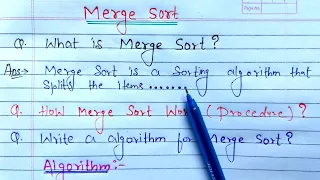 Merge Sort
Q. What is Merge Sort?
Ans:- Merge Sort is a Sorting algorithm that
splits the items.......
Q. How Merge Sort Work (Procedure)?
Q. Write a algorithm for Merge Sort?
Algorithm:-